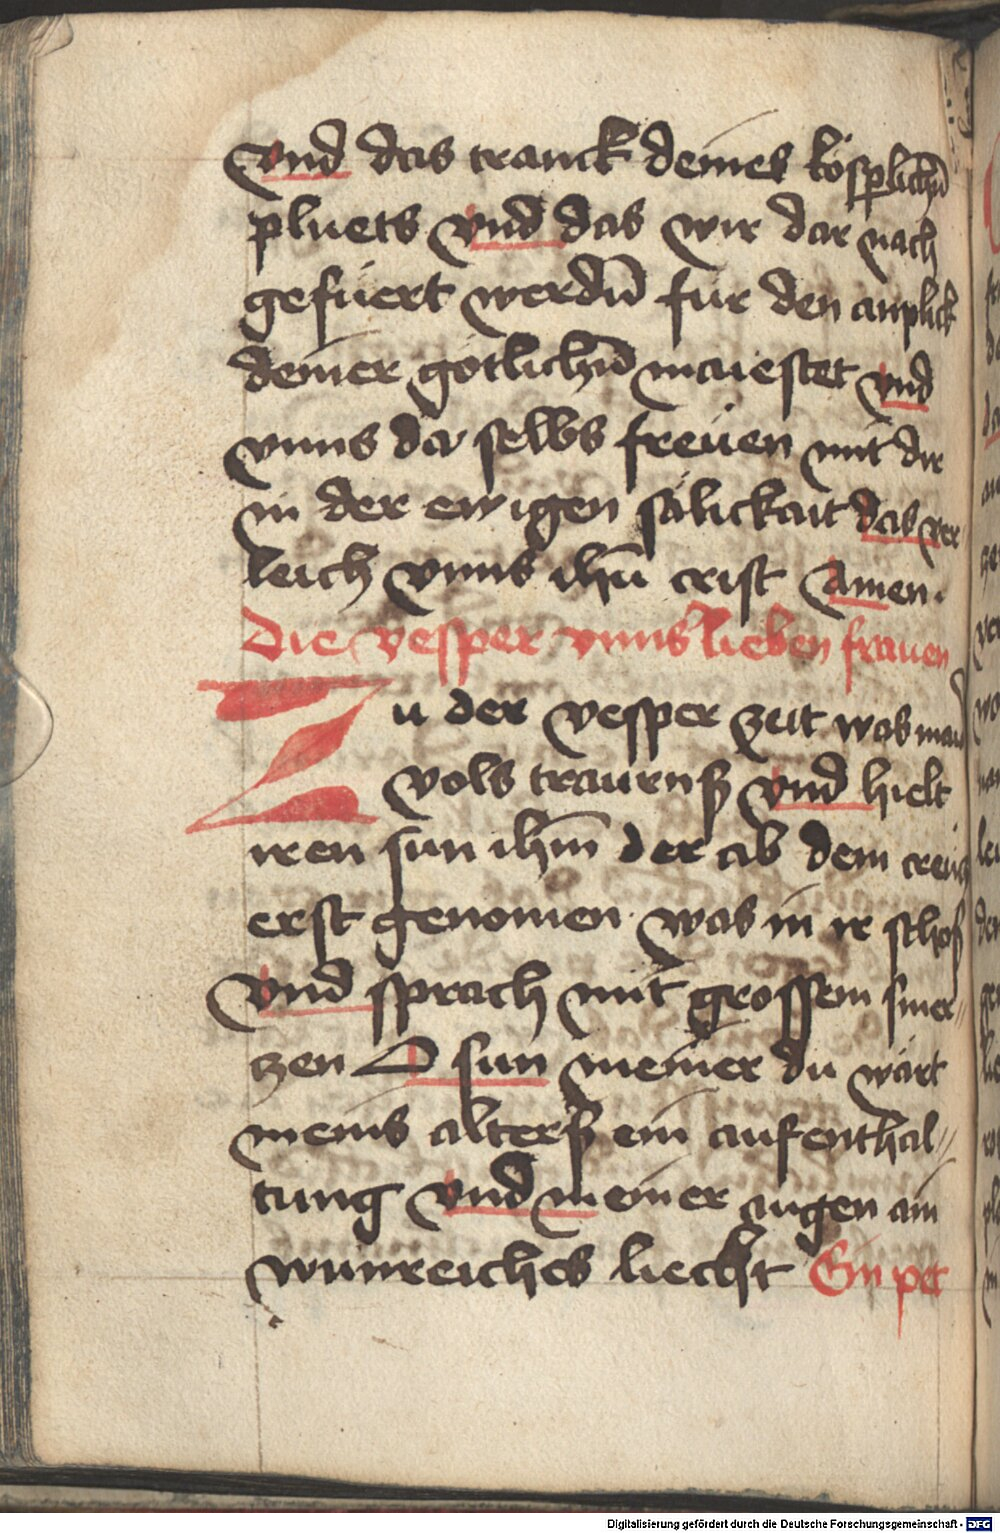 vnd das tranck deines kosplichn̄
pluets vnd das wir dar nach
gefüert werdn̄ fur den anplick
deiner gotlichn̄ maiestet vnd
vnns da selbs freüen mit dir
in der ewigen sälickait das ver
leich vnns ihū crist Amen.
Die vesper vnns lieben frauen
Zu der vesper zeit was maria
vols traurenß vnd hielt
iren sun ihm̄ der ab dem creücz
erst genomen was in ir schoß
vnd sprach mit grossem smer//
zen O sun meiner du wart
meins alterß ein aufenthal//
tung vnd meiner augen ain
wunreiches liecht Ein pet
Digitalisierung gefördert durch die Deutsche Forschungsgemeinschaft - DFG